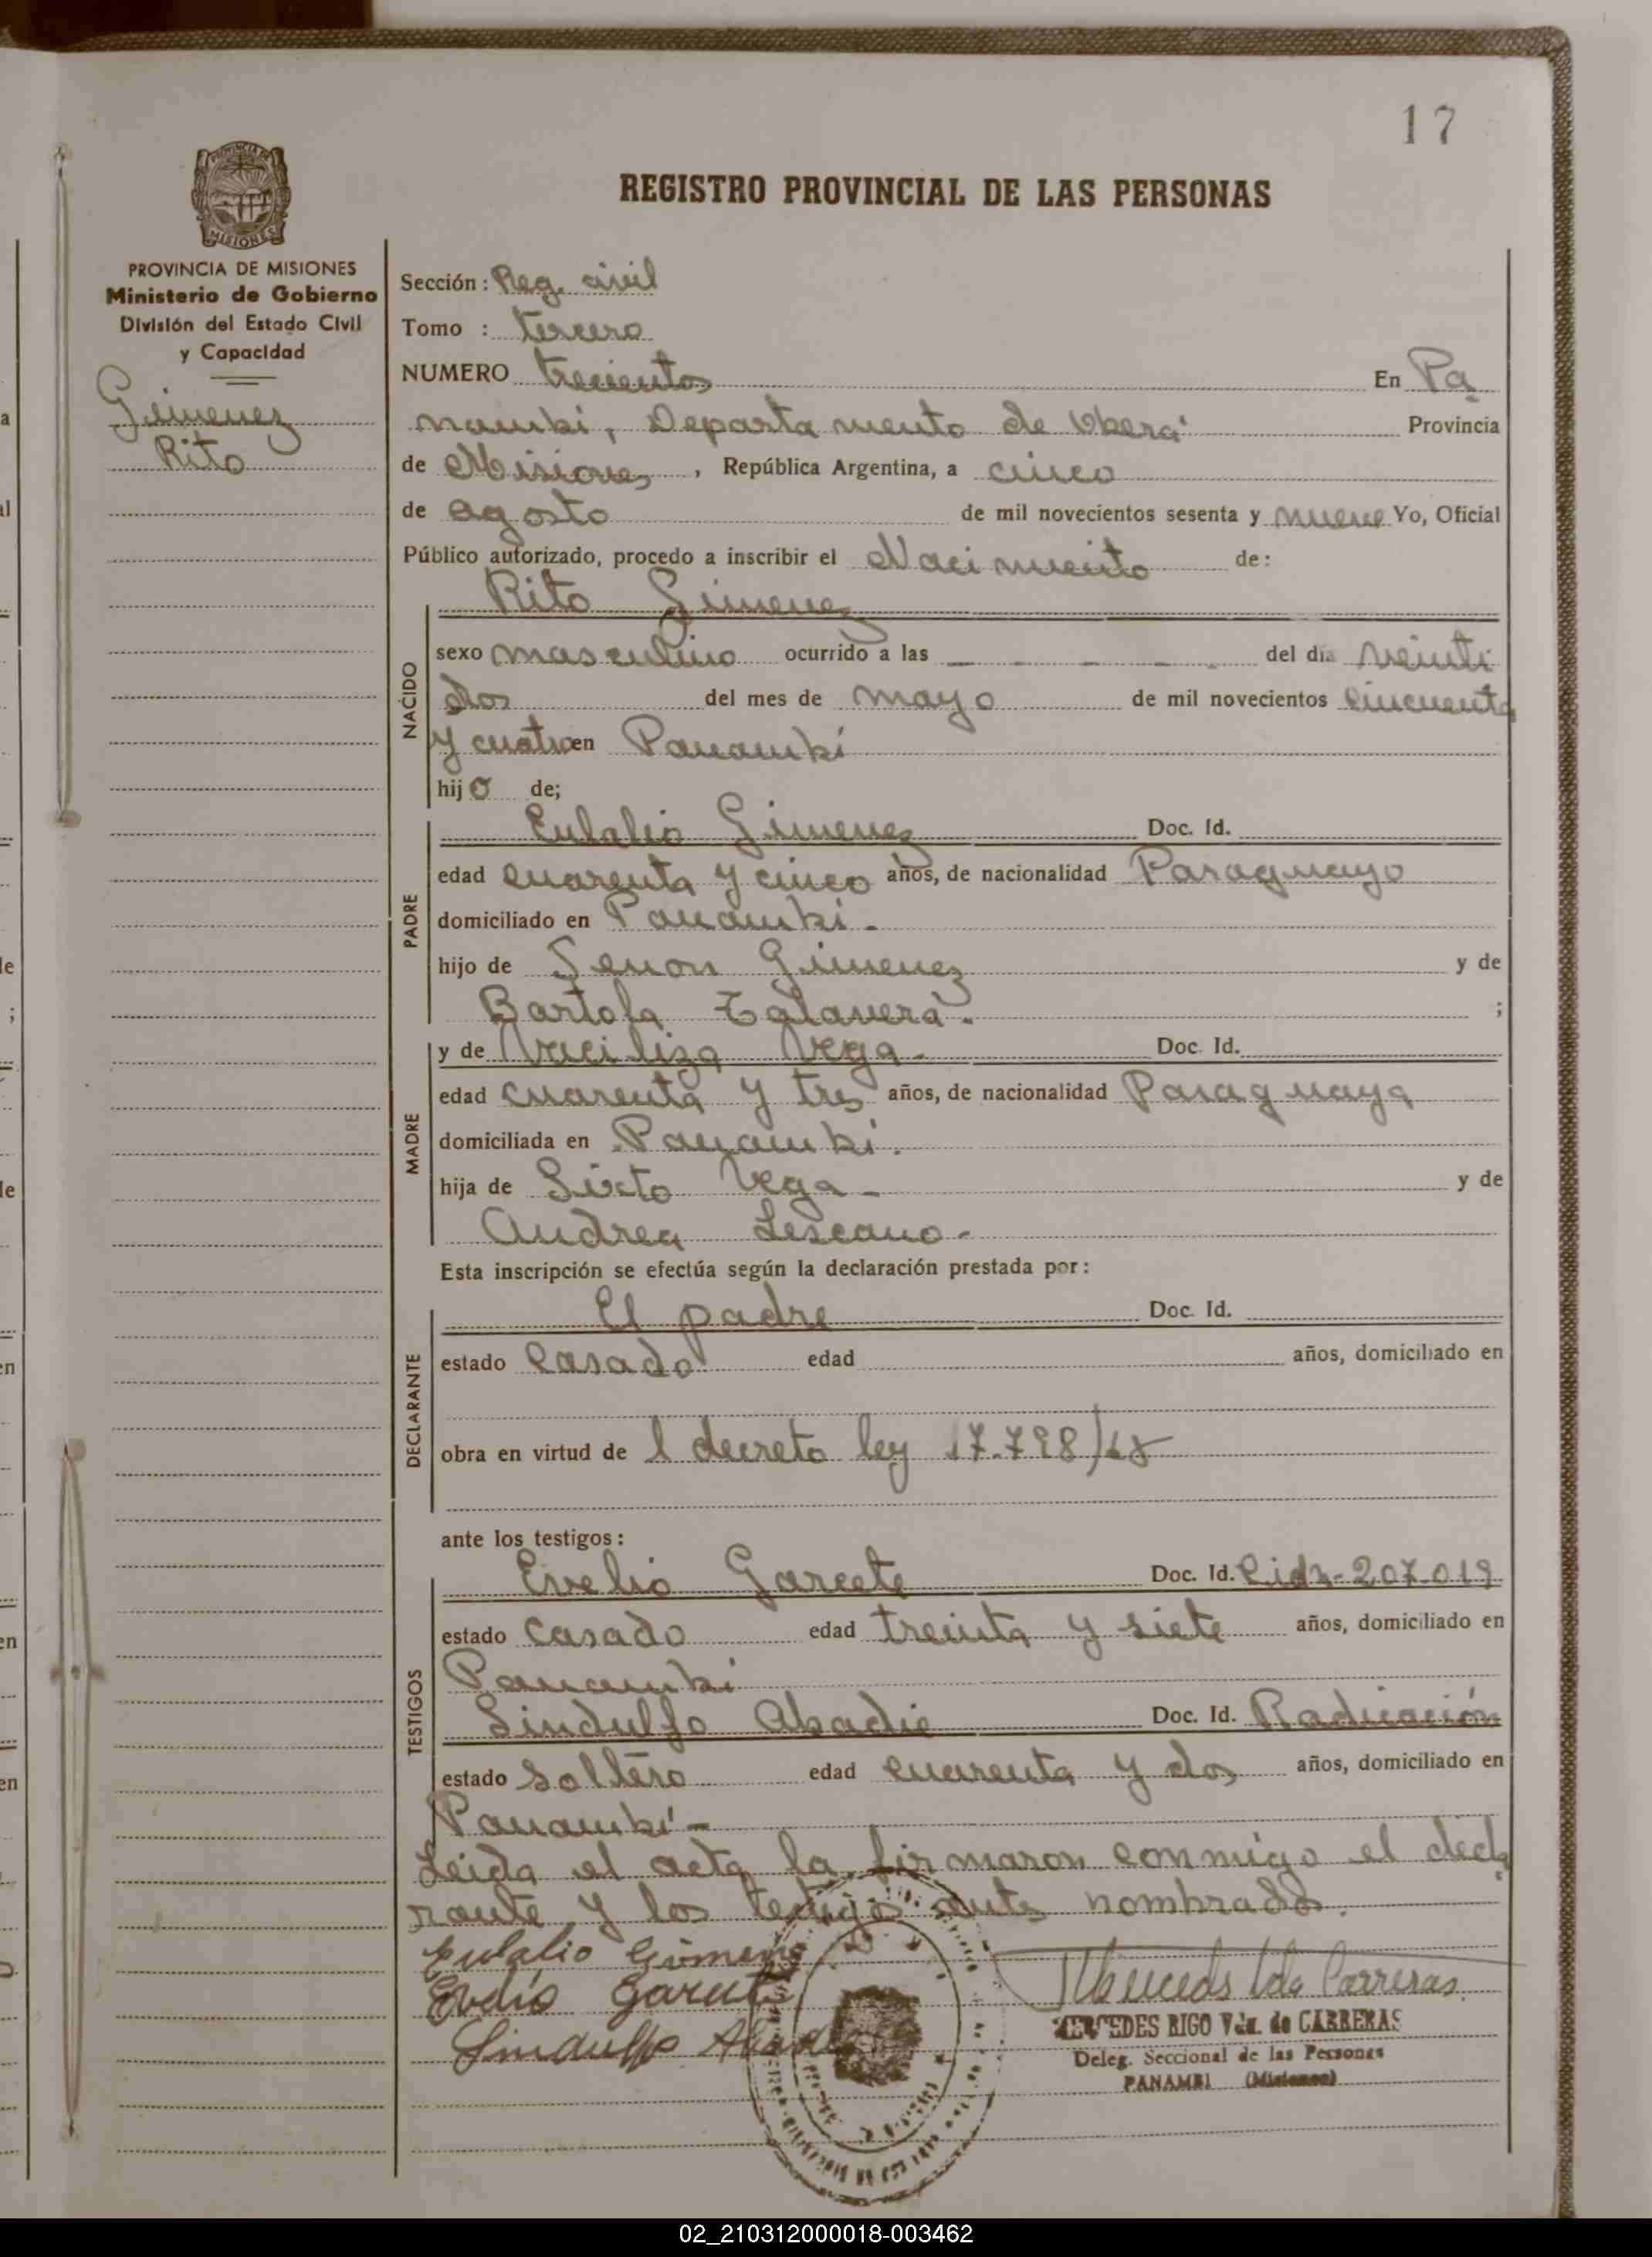 17
REGISTRO PROVINCIAL DE LAS PERSONAS
PROVINCIA DE MISIONES
Ministerio de Gobierno
División del Estado Civil
y Capacidad
Gimenez
Rito
Sección: Reg. civil
Tomo : tercero
NUMERO trecientos En Pa
nambi, Departamento de Oberá Provincia
de Misiones, República Argentina, a cinco
de agosto de mil novecientos sesenta y nueve Yo, Oficial
Público autorizado, procedo a inscribir el Nacimiento de:
Rito Gimenez
NACIDO
sexo masculino ocurrido a las del día veinti
dos del mes de mayo de mil novecientos cincuenta
y cuatro en Panambí
hijo de;
PADRE
Eulalio Gimenez Doc. Id.
edad cuarenta y cinco años, de nacionalidad Paraguayo
domiciliado en Panambí.
hijo de Senon Gimenez y de
Bartola Talavera. ;
MADRE
y de Vega. Doc. Id.
edad cuarenta y tres años, de nacionalidad Paraguaya
domiciliada en Panambí.
hija de Sixto Vega- y de
Andrea Lescano-
Esta inscripción se efectúa según la declaración prestada por:
DECLARANTE
El padre Doc. Id.
estado Casado edad años, domiciliado en
obra en virtud de l decreto ley 17.798/68
ante los testigos:
TESTIGOS
Evelio Garcete Doc. Id. 207.019
estado casado edad treinta y siete años, domiciliado en
Panambí
Lindulfo Abadie Doc. Id. Radicación
estado soltero edad cuarenta y dos años, domiciliado en
Panambí-
Leida el acta la firmaron conmigo el decla
rante y los testigos antes nombrados.
Eulalio Gimenez
Evelio Garcete
Lindulfo Abadie
Mercedes Vda Carreras
MERCEDES RIGO Vda. de CARRERAS
Deleg. Seccional de las Personas
PANAMBI (Misiones)
02_210312000018-003462